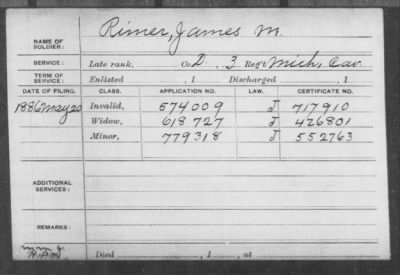 NAME OF SOLDIER: Rimer, James M.
SERVICE: Late rank, Co. D, 3 Reg't Mich. Cav.
TERM OF SERVICE: Enlisted , 1 Discharged , 1
DATE OF FILING. CLASS. APPLICATION NO. LAW. CERTIFICATE NO.
1886 May 20 Invalid, 574009 J 717910
Widow, 618727 J 426801
Minor, 779318 J 552763
ADDITIONAL SERVICES:
REMARKS:
Died , 1 , at